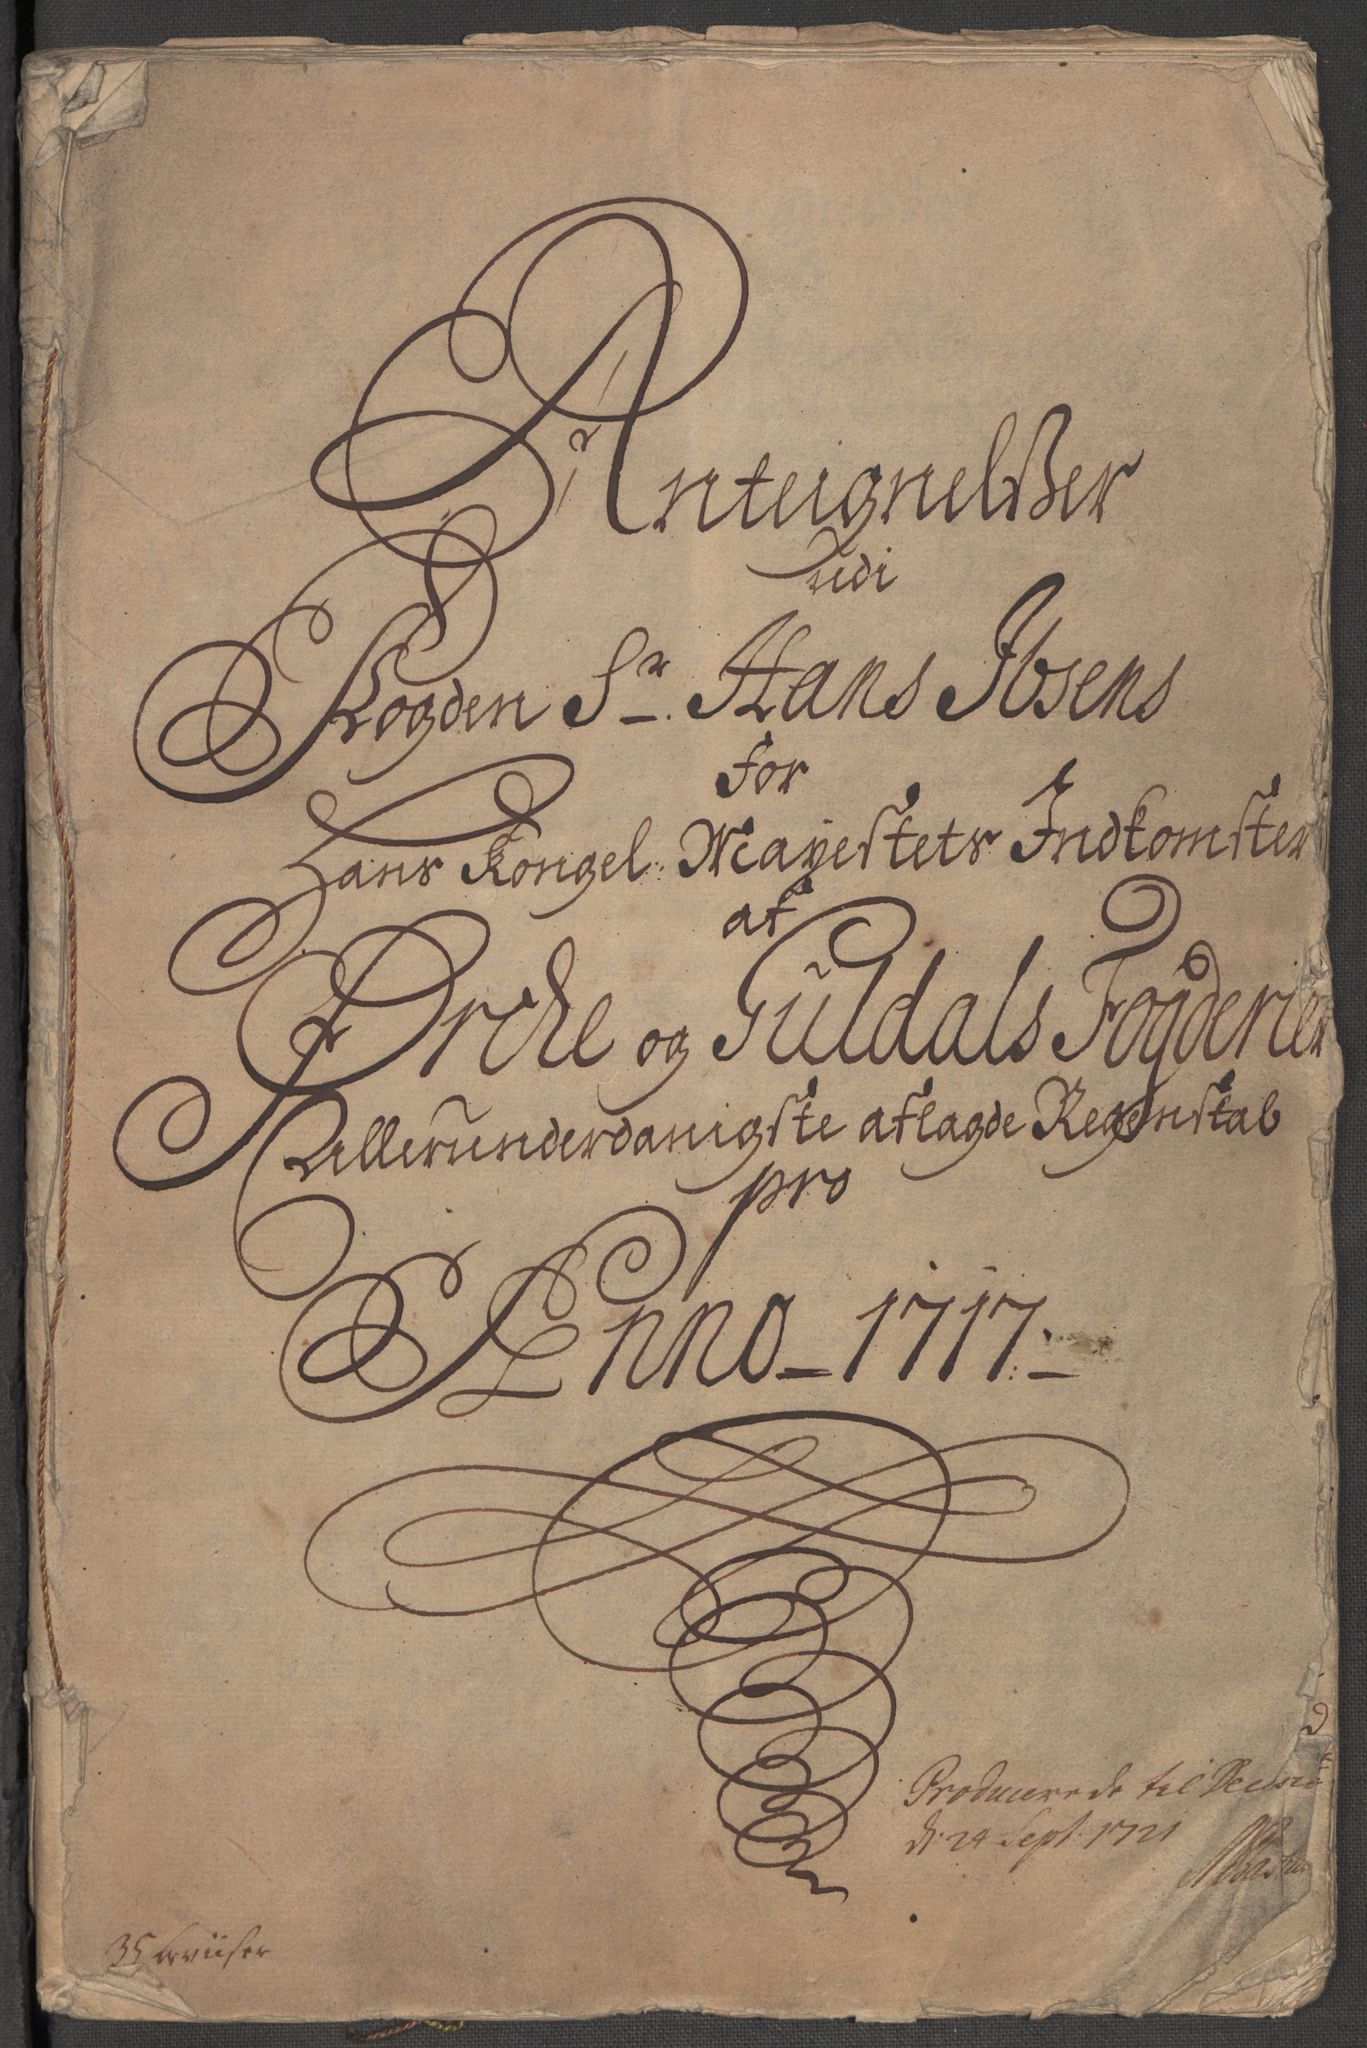 Anteignelsßer
udi
Fogden Sr. Hans Ibsens
for
Hans Kongel: Mayestets Indkomster
af
Orcke og Guldals Fogderier
Allerunderdanigste aflagde Regenskab
pro
Anno 1717
Producerede til
d: 24 Sept: 1721
35 beviiser